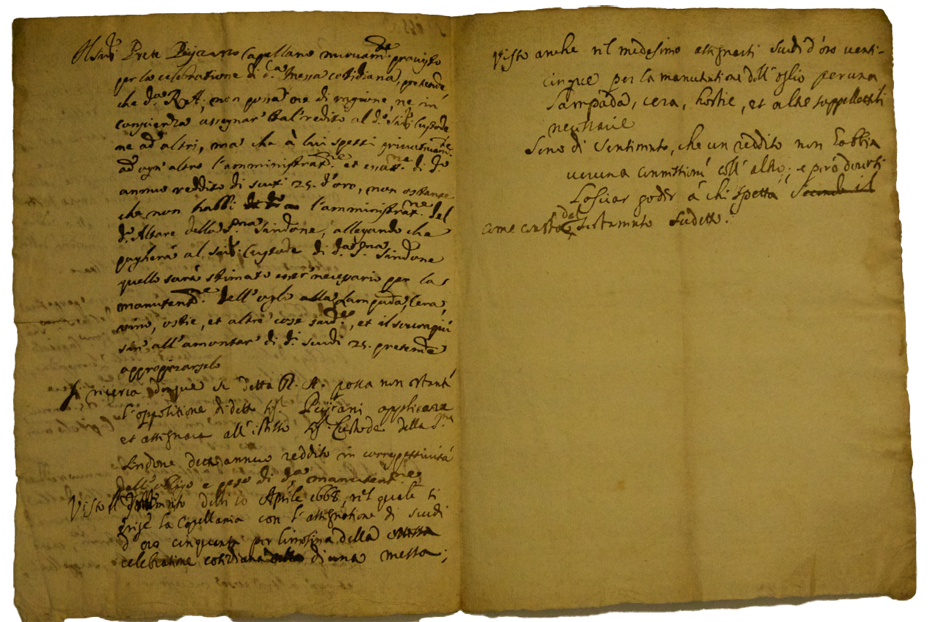 Prete Capellano nuovam.te provisto
per la celebratione di d.a Messa cotidiana, pretende
che d.a R.A. non possa ne di ragione, ne in
conscienza assegnar tal reddito al d.o Custode
ne ad altri, ma che à lui spetti privativam.te
ad ogni altro l'amministrat.ne et di d.o
annuo reddito di scuti 25. d'oro, non ostante
che non habbi l'amministrat.ne del
d.o Altare della S.ma Sindone, allegando che
pagherà al Custode di d.a S.ma Sindone
quello sarà stimato esser necessario per la
manutent.ne dell'oglio alla Lampada, Cera,
vino, ostie, et altre cose sud.e, et il sovrapiù
sin all'amontar di d.i Scudi 25. pretende
appropriarselo
ricerca dunque se detta R.A. possa non ostante
l'oppositione di detto applicare
et assignare all'istesso Custode della S.ma
Sindone detto annuo reddito in correspettività
dell' e peso di d.a manutent.ne
Visto il Testamento delli 10 Aprile 1668, nel quale si
erige la Capellania con l'assignatione di Scudi
d'oro cinquanta per limosina della
celebratione cotidiana di una messa;
Visto anche nel medesimo assignarsi Scudi d'oro venti-
cinque per la manutentione dell'oglio per una
Lampada, cera, hostie, et altre suppellettili
necessarie
Sono di Sentimento, che un reddito non habbia
veruna connessione coll'altro; e però doversi
Lasciar goder à chi spetta
come consta dal Testamento sudetto.